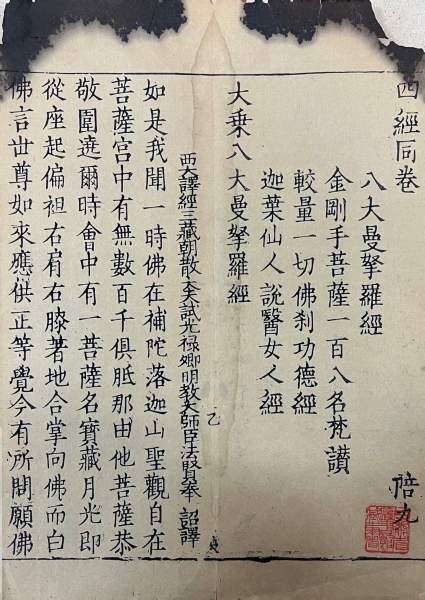 四經同卷
八大曼拏羅經
金剛手菩薩一百八名梵讃
較量一切佛刹功德經
迦葉仙人說醫女人經
陪九
大乗八大曼拏羅經
西天譯經三藏朝散大夫試光禄卿明教大師臣法賢奉 詔譯
如是我聞一時佛在補陀落迦山聖觀自在
菩薩宫中有無數百千俱胝那由他菩薩恭
敬圍遶爾時會中有一菩薩名寳藏月光即
從座起偏袒右肩右膝著地合掌向佛而白
佛言世尊如來應供正等覺今有所問願佛